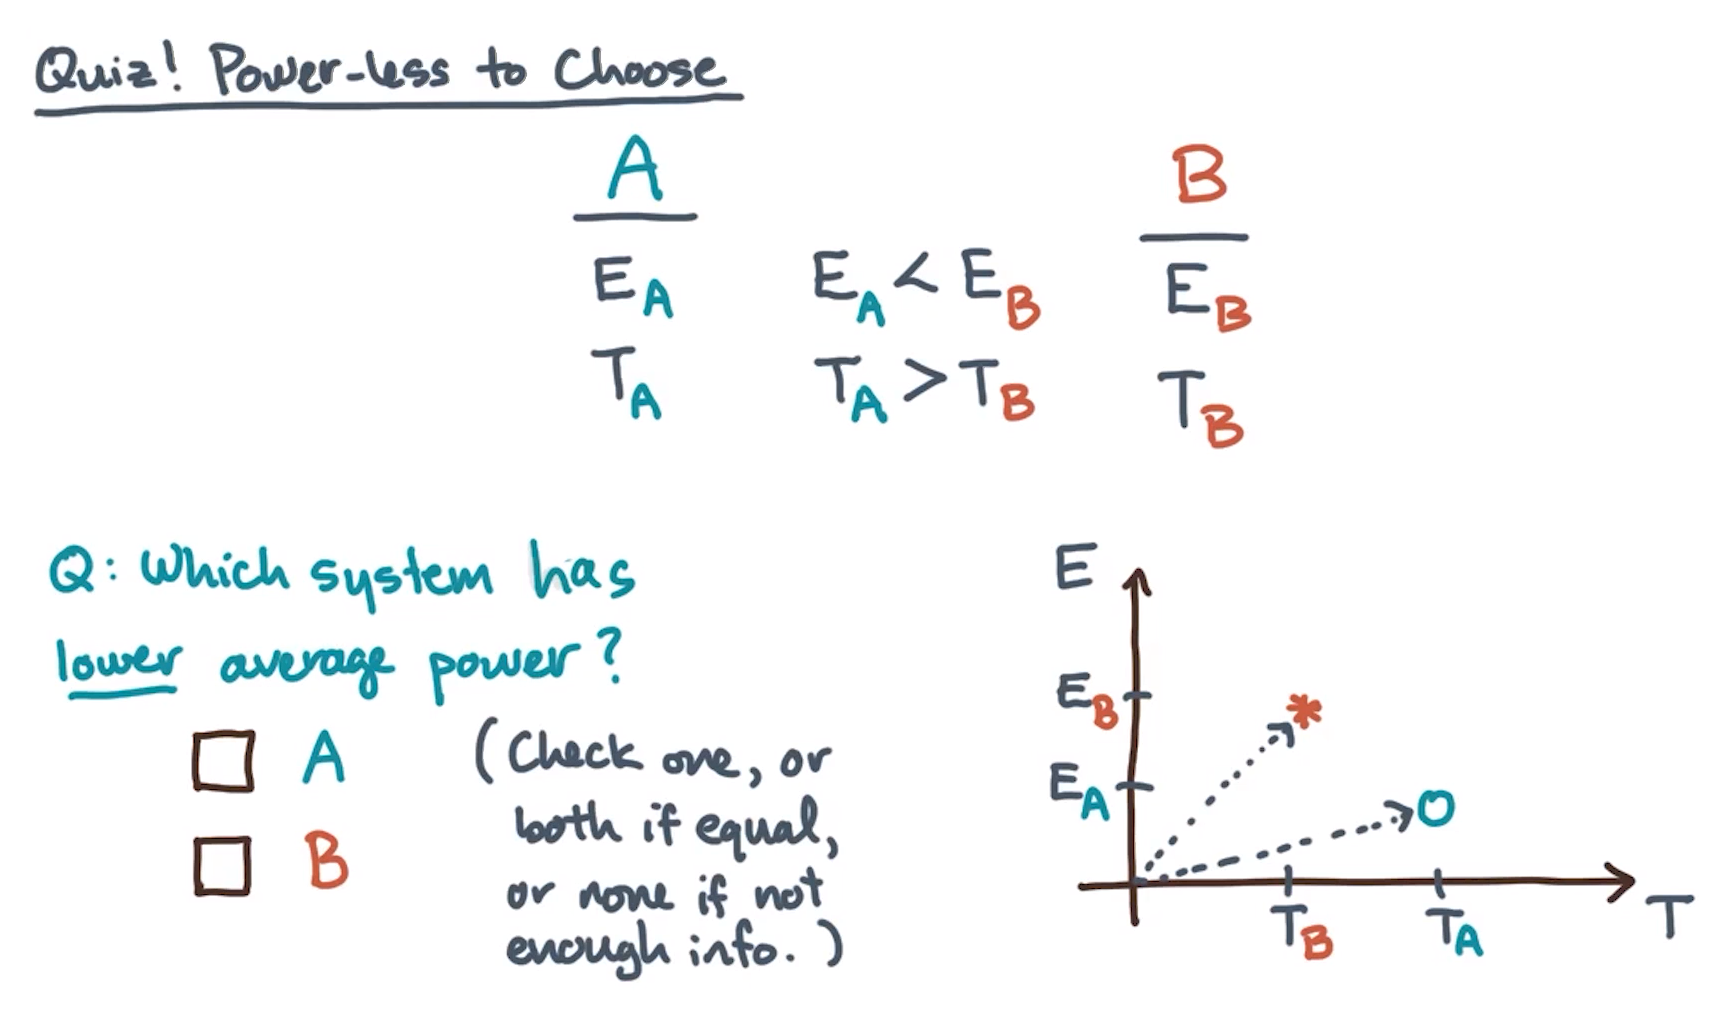 Quiz! Power-less to Choose
A
B
E_A
E_A < E_B
E_B
T_A
T_A > T_B
T_B
Q: Which system has
lower average power?
A
B
(Check one, or
both if equal,
or none if not
enough info.)
E
E_B
*
E_A
O
T_B
T_A
T